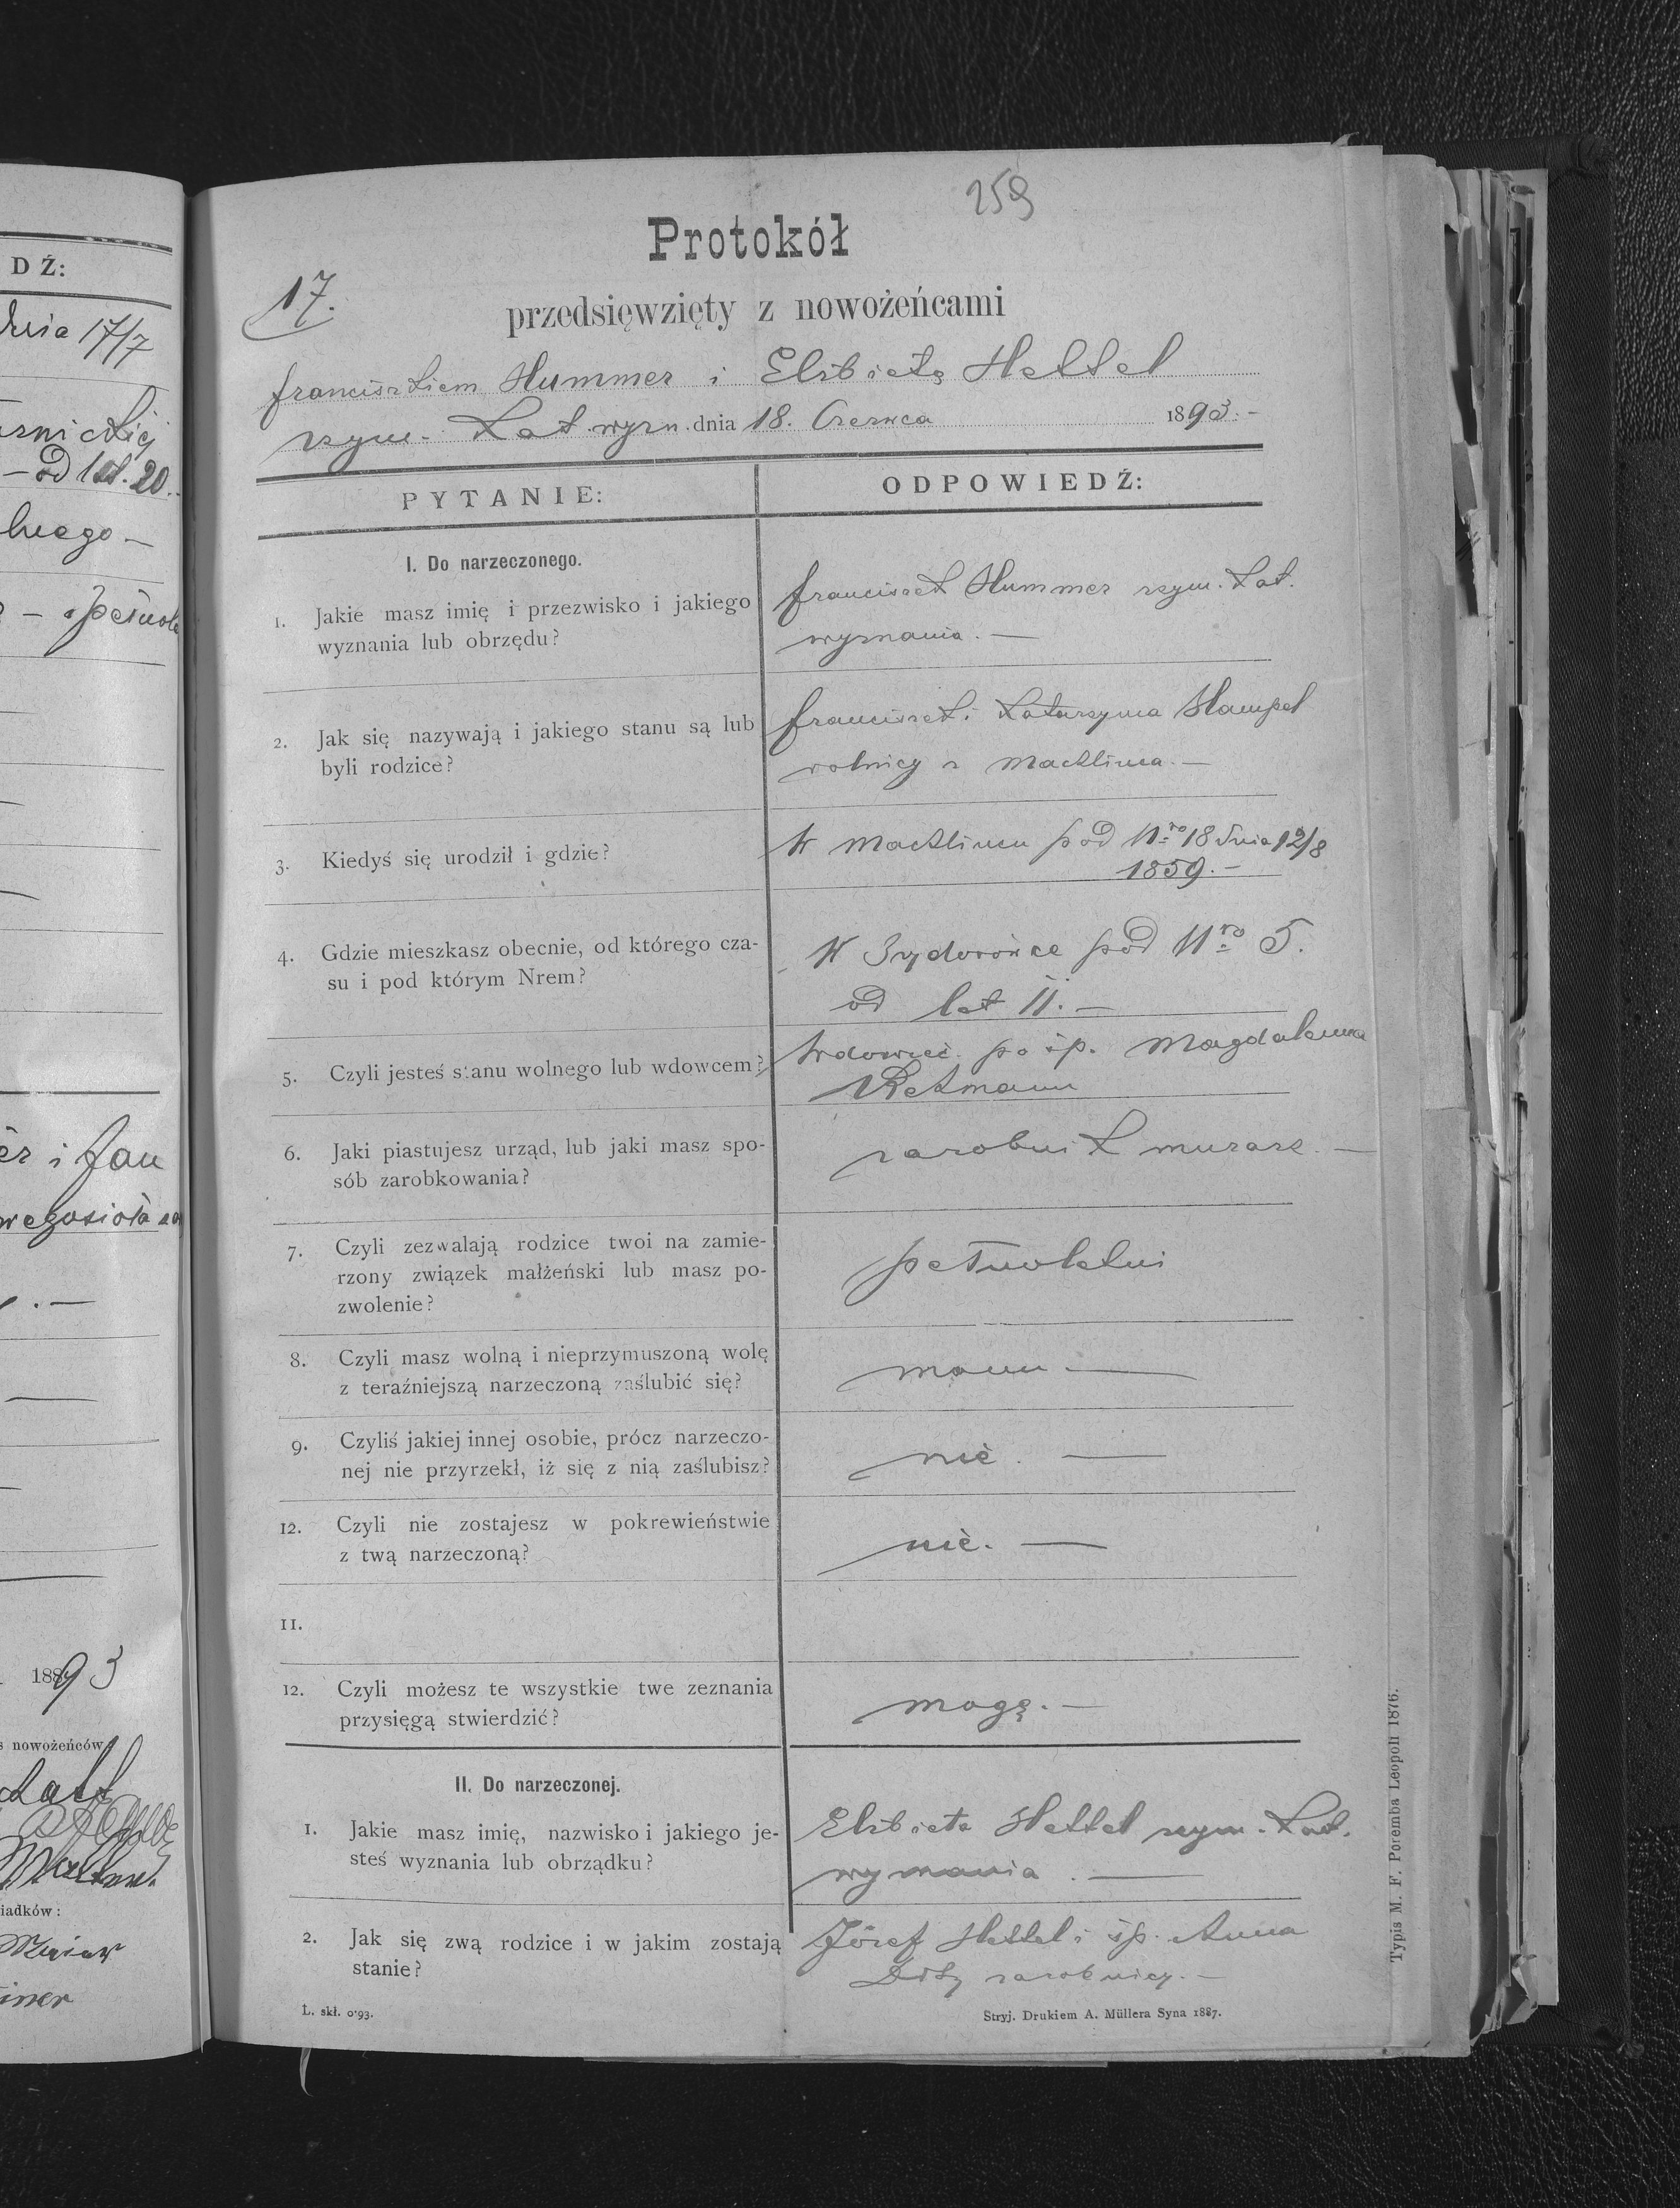 DŹ:
dnia 17/7
— od lat. 20.
1893
s nowożeńców
iadków:
259
Protokół
17.
przedsięwzięty z nowożeńcami
Franciszkiem Hummer i Elżbietą Hettel
rzym. kat. wyzn. dnia 18. Czerwca 1893. —
PYTANIE:
ODPOWIEDŹ:
I. Do narzeczonego.
1. Jakie masz imię i przezwisko i jakiego
wyznania lub obrzędu?
Franciszek Hummer rzym. kat.
wyznania. —
2. Jak się nazywają i jakiego stanu są lub
byli rodzice?
Franciszek i Katarzyna Hampel
rolnicy z Machlinca. —
3. Kiedyś się urodził i gdzie?
W Machlincu pod Nro 18 dnia 12/8
1859. —
4. Gdzie mieszkasz obecnie, od którego cza-
su i pod którym Nrem?
W Sydorówce pod Nro 5.
od lat 11. —
5. Czyli jesteś stanu wolnego lub wdowcem?
Wdowiec po śp. Magdalenna
Rekmann
6. Jaki piastujesz urząd, lub jaki masz spo-
sób zarobkowania?
zarobnik murarz. —
7. Czyli zezwalają rodzice twoi na zamie-
rzony związek małżeński lub masz po-
zwolenie?
pełnoletni
8. Czyli masz wolną i nieprzymuszoną wolę
z teraźniejszą narzeczoną zaślubić się?
mam —
9. Czyliś jakiej innej osobie, prócz narzeczo-
nej nie przyrzekł, iż się z nią zaślubisz?
nie. —
12. Czyli nie zostajesz w pokrewieństwie
z twą narzeczoną?
nie. —
11.
12. Czyli możesz te wszystkie twe zeznania
przysięgą stwierdzić?
mogę. —
II. Do narzeczonej.
1. Jakie masz imię, nazwisko i jakiego je-
steś wyznania lub obrządku?
Elżbieta Hettel rzym. kat.
wyznania. —
2. Jak się zwą rodzice i w jakim zostają
stanie?
Józef Hettel i śp. Anna
zarobnicy. —
L. skł. 0·93.
Stryj. Drukiem A. Müllera Syna 1887.
Typis M. F. Poremba Leopoli 1876.